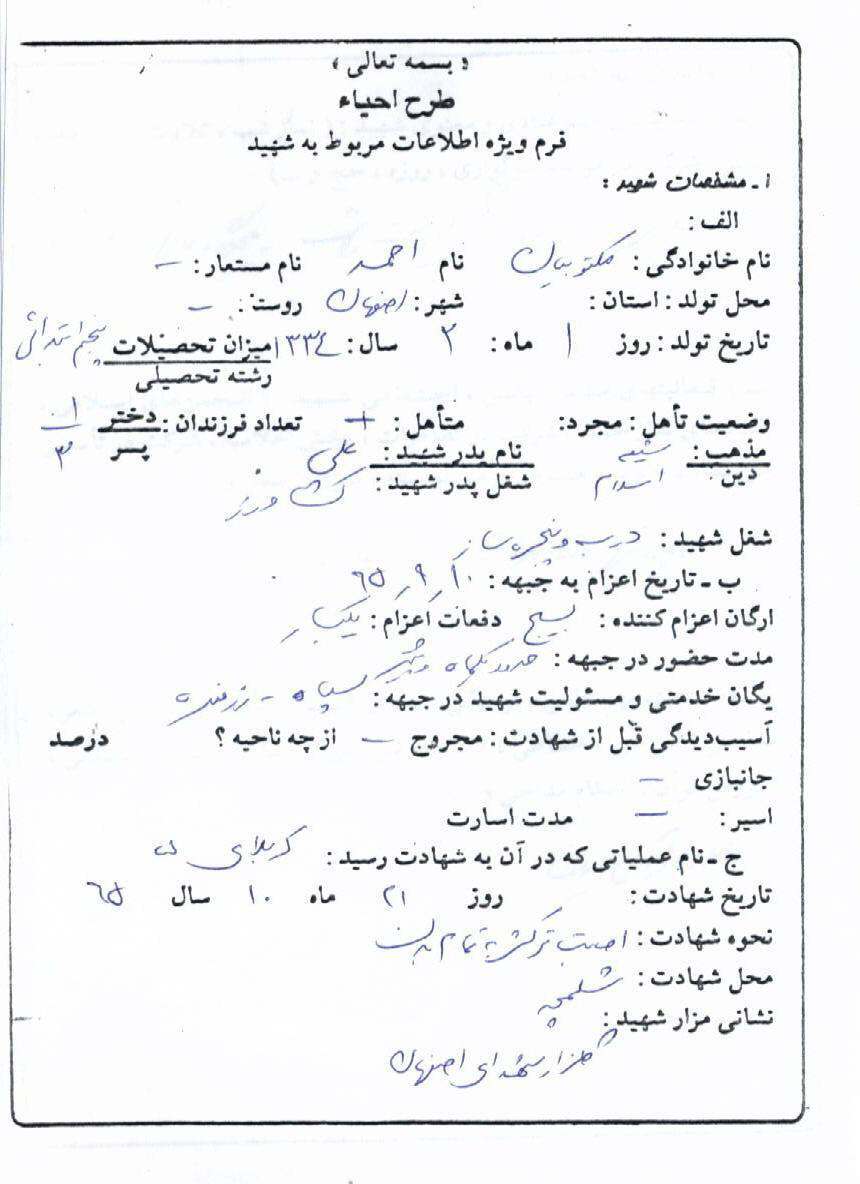 « بسمه تعالی »
طرح احیاء
فرم ویژه اطلاعات مربوط به شهید
۱ ـ مشخصات شهید :
الف :
نام خانوادگی : مکتوبیان نام احمد نام مستعار : –
محل تولد : استان : شهر : اصفهان روستا : –
تاریخ تولد : روز ۱ ماه : ۲ سال : ۱۳۳۴ میزان تحصیلات پنجم ابتدائی
رشته تحصیلی
وضعیت تأهل : مجرد : متأهل : + تعداد فرزندان : دختر ۱
پسر ۳
مذهب : شیعه نام پدر شهید : علی
دین اسلام شغل پدر شهید : کشاورز
شغل شهید : درب و پنجره ساز
ب ـ تاریخ اعزام به جبهه : ۱۰ ر ۹ ر ۶۵
ارگان اعزام کننده : بسیج دفعات اعزام : یکبار
مدت حضور در جبهه : حدود یکماه و
یگان خدمتی و مسئولیت شهید در جبهه : سپاه - رزمنده
آسیب‌دیدگی قبل از شهادت : مجروح – از چه ناحیه ؟ درصد
جانبازی –
اسیر : – مدت اسارت
ج ـ نام عملیاتی که در آن به شهادت رسید : کربلای ۵
تاریخ شهادت : روز ۲۱ ماه ۱۰ سال ۶۵
نحوه شهادت : اصابت ترکش به تمام بدن
محل شهادت : شلمچه
نشانی مزار شهید :
گلزار شهدای اصفهان